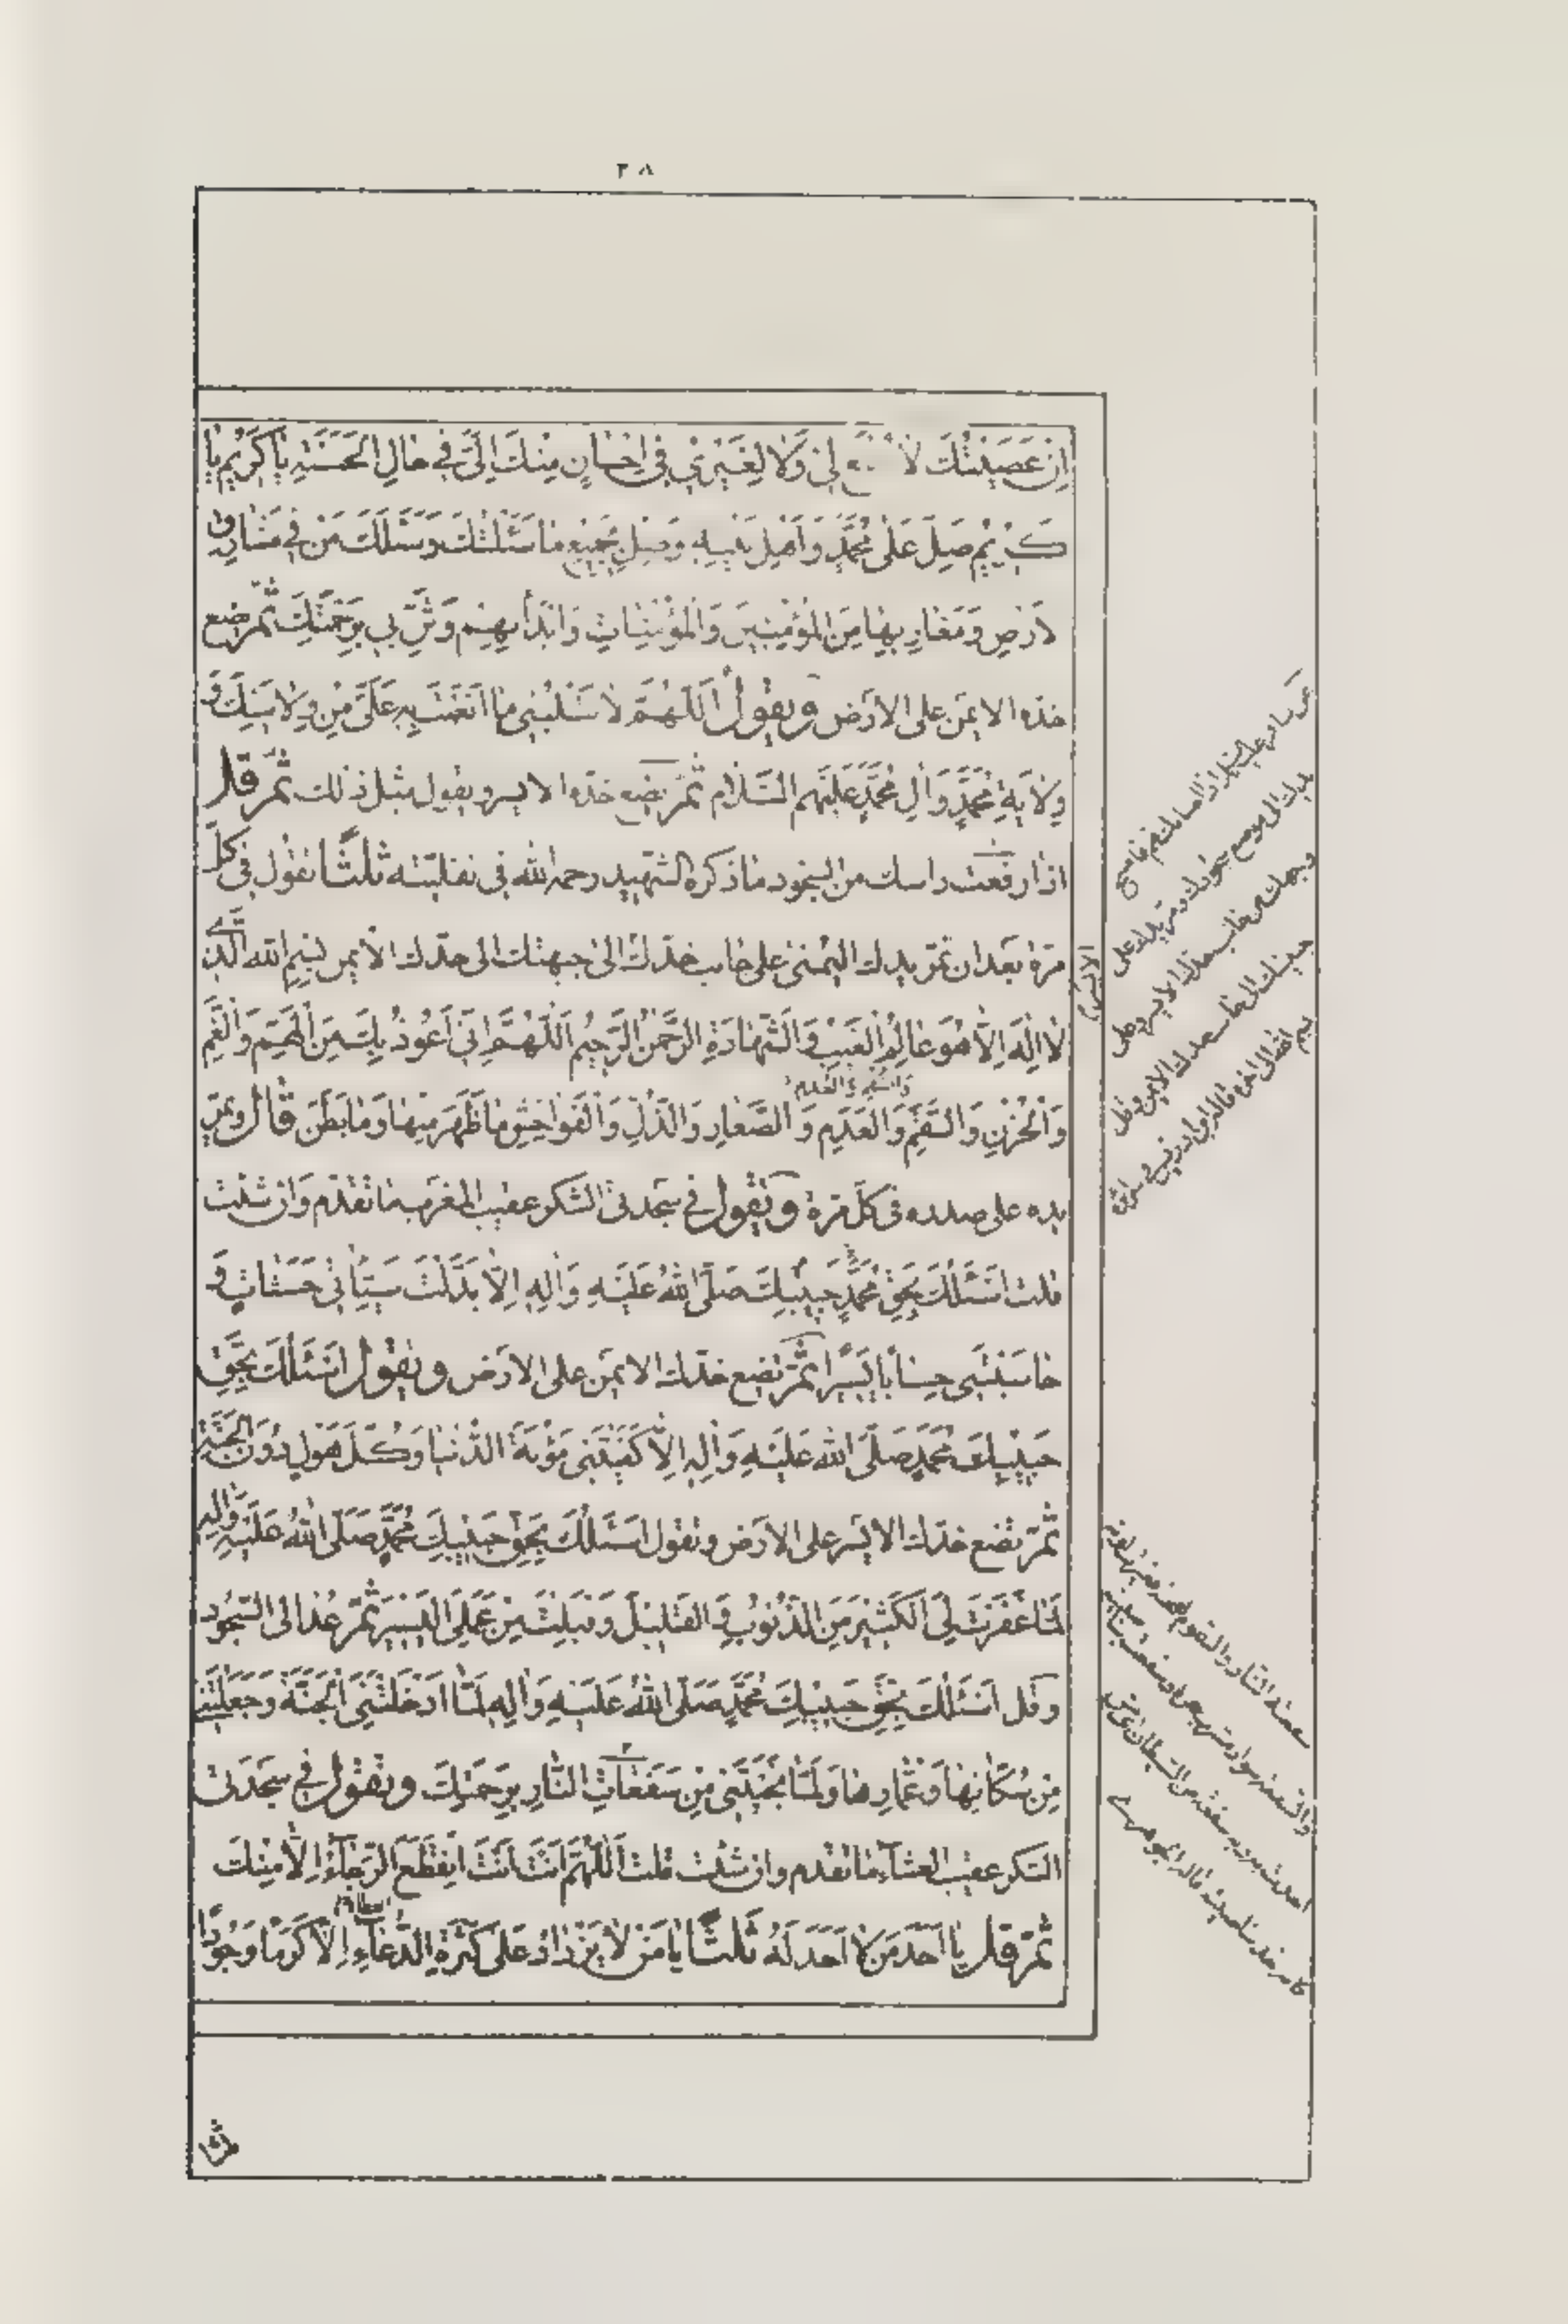 ٢٨
اِنْ عَصَيْتُكَ لا لي وَلا لِغَيْرِي فِي اِحْسانٍ مِنْكَ اِلَيَّ في حالِ الْحَسَنَةِ يا كَريمُ يا
كَريمُ صَلِّ عَلى مُحَمَّدٍ وَاَهْلِ بَيْتِهِ وَصِلْ بِجَميعِ ما سَئَلْتُكَ وَسَئَلَكَ مَنْ في مَشارِقِ
لارْضِ وَمَغارِبِها مِنَ الْمُؤْمِنينَ وَالْمُؤْمِناتِ وَابْدَأْ بِهِمْ وَثَنِّ بي بِرَحْمَتِكَ ثُمَّ يضع
خدّه الايمن على الارض ويقول اَللّهُمَّ لا تَسْلُبْني ما اَنْعَمْتَ بِهِ عَلَيَّ مِنْ وِلايَتِكَ وَ
وِلايَةِ مُحَمَّدٍ وَآلِ مُحَمَّدٍ عَلَيْهِم السَّلام ثمّ يضع خدّه الايسر ويقول مثل ذلك ثمّ قل
اذا رفعت راسك من السجود ما ذكره الشهيد رحمه الله في نفليّته ثلثًا تقول في كلّ
مرّة بعد ان تمرّ يدك اليمنى على جانب خدّك الى جبهتك الى خدّك الايمن بِسْمِ اللهِ الَّذي
الايسر
لا اِلهَ اِلّا هُوَ عالِمُ الْغَيْبِ وَالشَّهادَةِ الرَّحْمنُ الرَّحيمُ اَللّهُمَّ اِنّي اَعُوذُ بِكَ مِنَ الْهَمِّ وَالْغَمِّ
وَالسُّقْمِ وَالْعُدْمِ
وَالْحُزْنِ وَالسَّقَمِ وَالْعَدَمِ وَالصَّغارِ وَالذُّلِّ وَالْفَواحِشِ ما ظَهَرَ مِنْها وَما بَطَنَ قال ويمرّ
يده على صدره في كلّ مرّة وتقول في سجدتي الشكر عقيب المغرب ما تقدّم وان شئت
قلت اَسْئَلُكَ بِحَقِّ مُحَمَّدٍ حَبيبِكَ صَلَّى اللهُ عَلَيْهِ وَآلِهِ اِلّا بَدَّلْتَ سَيِّئاتي حَسَناتٍ وَ
حاسَبْتَني حِسابًا يَسيرًا ثمّ تضع خدّك الايمن على الارض وتقول اَسْئَلُكَ بِحَقِّ
حَبيبِكَ مُحَمَّدٍ صَلَّى اللهُ عَلَيْهِ وَآلِهِ اِلّا كَفَيْتَني مَؤُنَةَ الدُّنْيا وَكُلَّ هَوْلٍ دُونَ الْجَنَّةِ
ثمّ تضع خدّك الايسر على الارض وتقول اَسْئَلُكَ بِحَقِّ حَبيبِكَ مُحَمَّدٍ صَلَّى اللهُ عَلَيْهِ وَآلِهِ
لَمّا غَفَرْتَ لِيَ الْكَثيرَ مِنَ الذُّنُوبِ وَالْقَليلَ وَقَبِلْتَ مِنْ عَمَلِيَ الْيَسيرَ ثمّ عد الى السجود
وقل اَسْئَلُكَ بِحَقِّ حَبيبِكَ مُحَمَّدٍ صَلَّى اللهُ عَلَيْهِ وَآلِهِ لَمّا اَدْخَلْتَنِي الْجَنَّةَ وَجَعَلْتَني
مِنْ سُكّانِها وَعُمّارِها وَلَمّا نَجَّيْتَني مِنْ سَفَعاتِ النّارِ بِرَحْمَتِكَ وتقول في سجدتي
الشكر عقيب العشآء ما تقدم وان شئت قلت اَللّهُمَّ اَنْتَ اَنْتَ انْقَطَعَ الرَّجآءُ اِلّا مِنْكَ
ثمّ قل يا اَحَدَ مَنْ لا اَحَدَ لَهُ ثلثًا يا مَنْ لا يَزْدادُ عَلى كَثْرَةِ الدُّعآءِ اِلّا كَرَمًا وَجُودًا
يدك الى موضع سجودك يدك على
وجهك من جانب خدك الايسر وعلى
جبينك الى جانب خدك الايمن وقل
بسم الله الى اخره قاله ابن ادريس